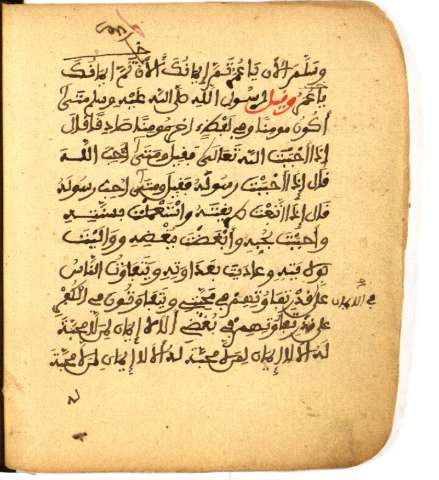 وسلم الأن يا عمر تم إيمانك الأن تم إيمانك
يا عمر وقيل لرسول الله صلى الله عليه وسلم متى
أكون مومنا وفي لفظ اخر مومنا صادقا قال
إذا أحببت الله تعالى فقيل ومتى أحب الله
قال إذا أحببت رسوله فقيل ومتى أحب رسوله
قال إذا اتبعت طريقته واستعملت بسنته
وأحببت بحبه وأبغضت ببغضه وواليت
بولايته وعاديت بعداوته ويتفاوت الناس
في الايمان
على قدر تفاوتهم في محبتي ويتفاوتون في الكفر
على قدر تفاوتهم في بغضي ألا لا إيمان لمن لا محبة
له ألا لا إيمان لمن لا محبة له ألا لا إيمان لمن لا محبة
له